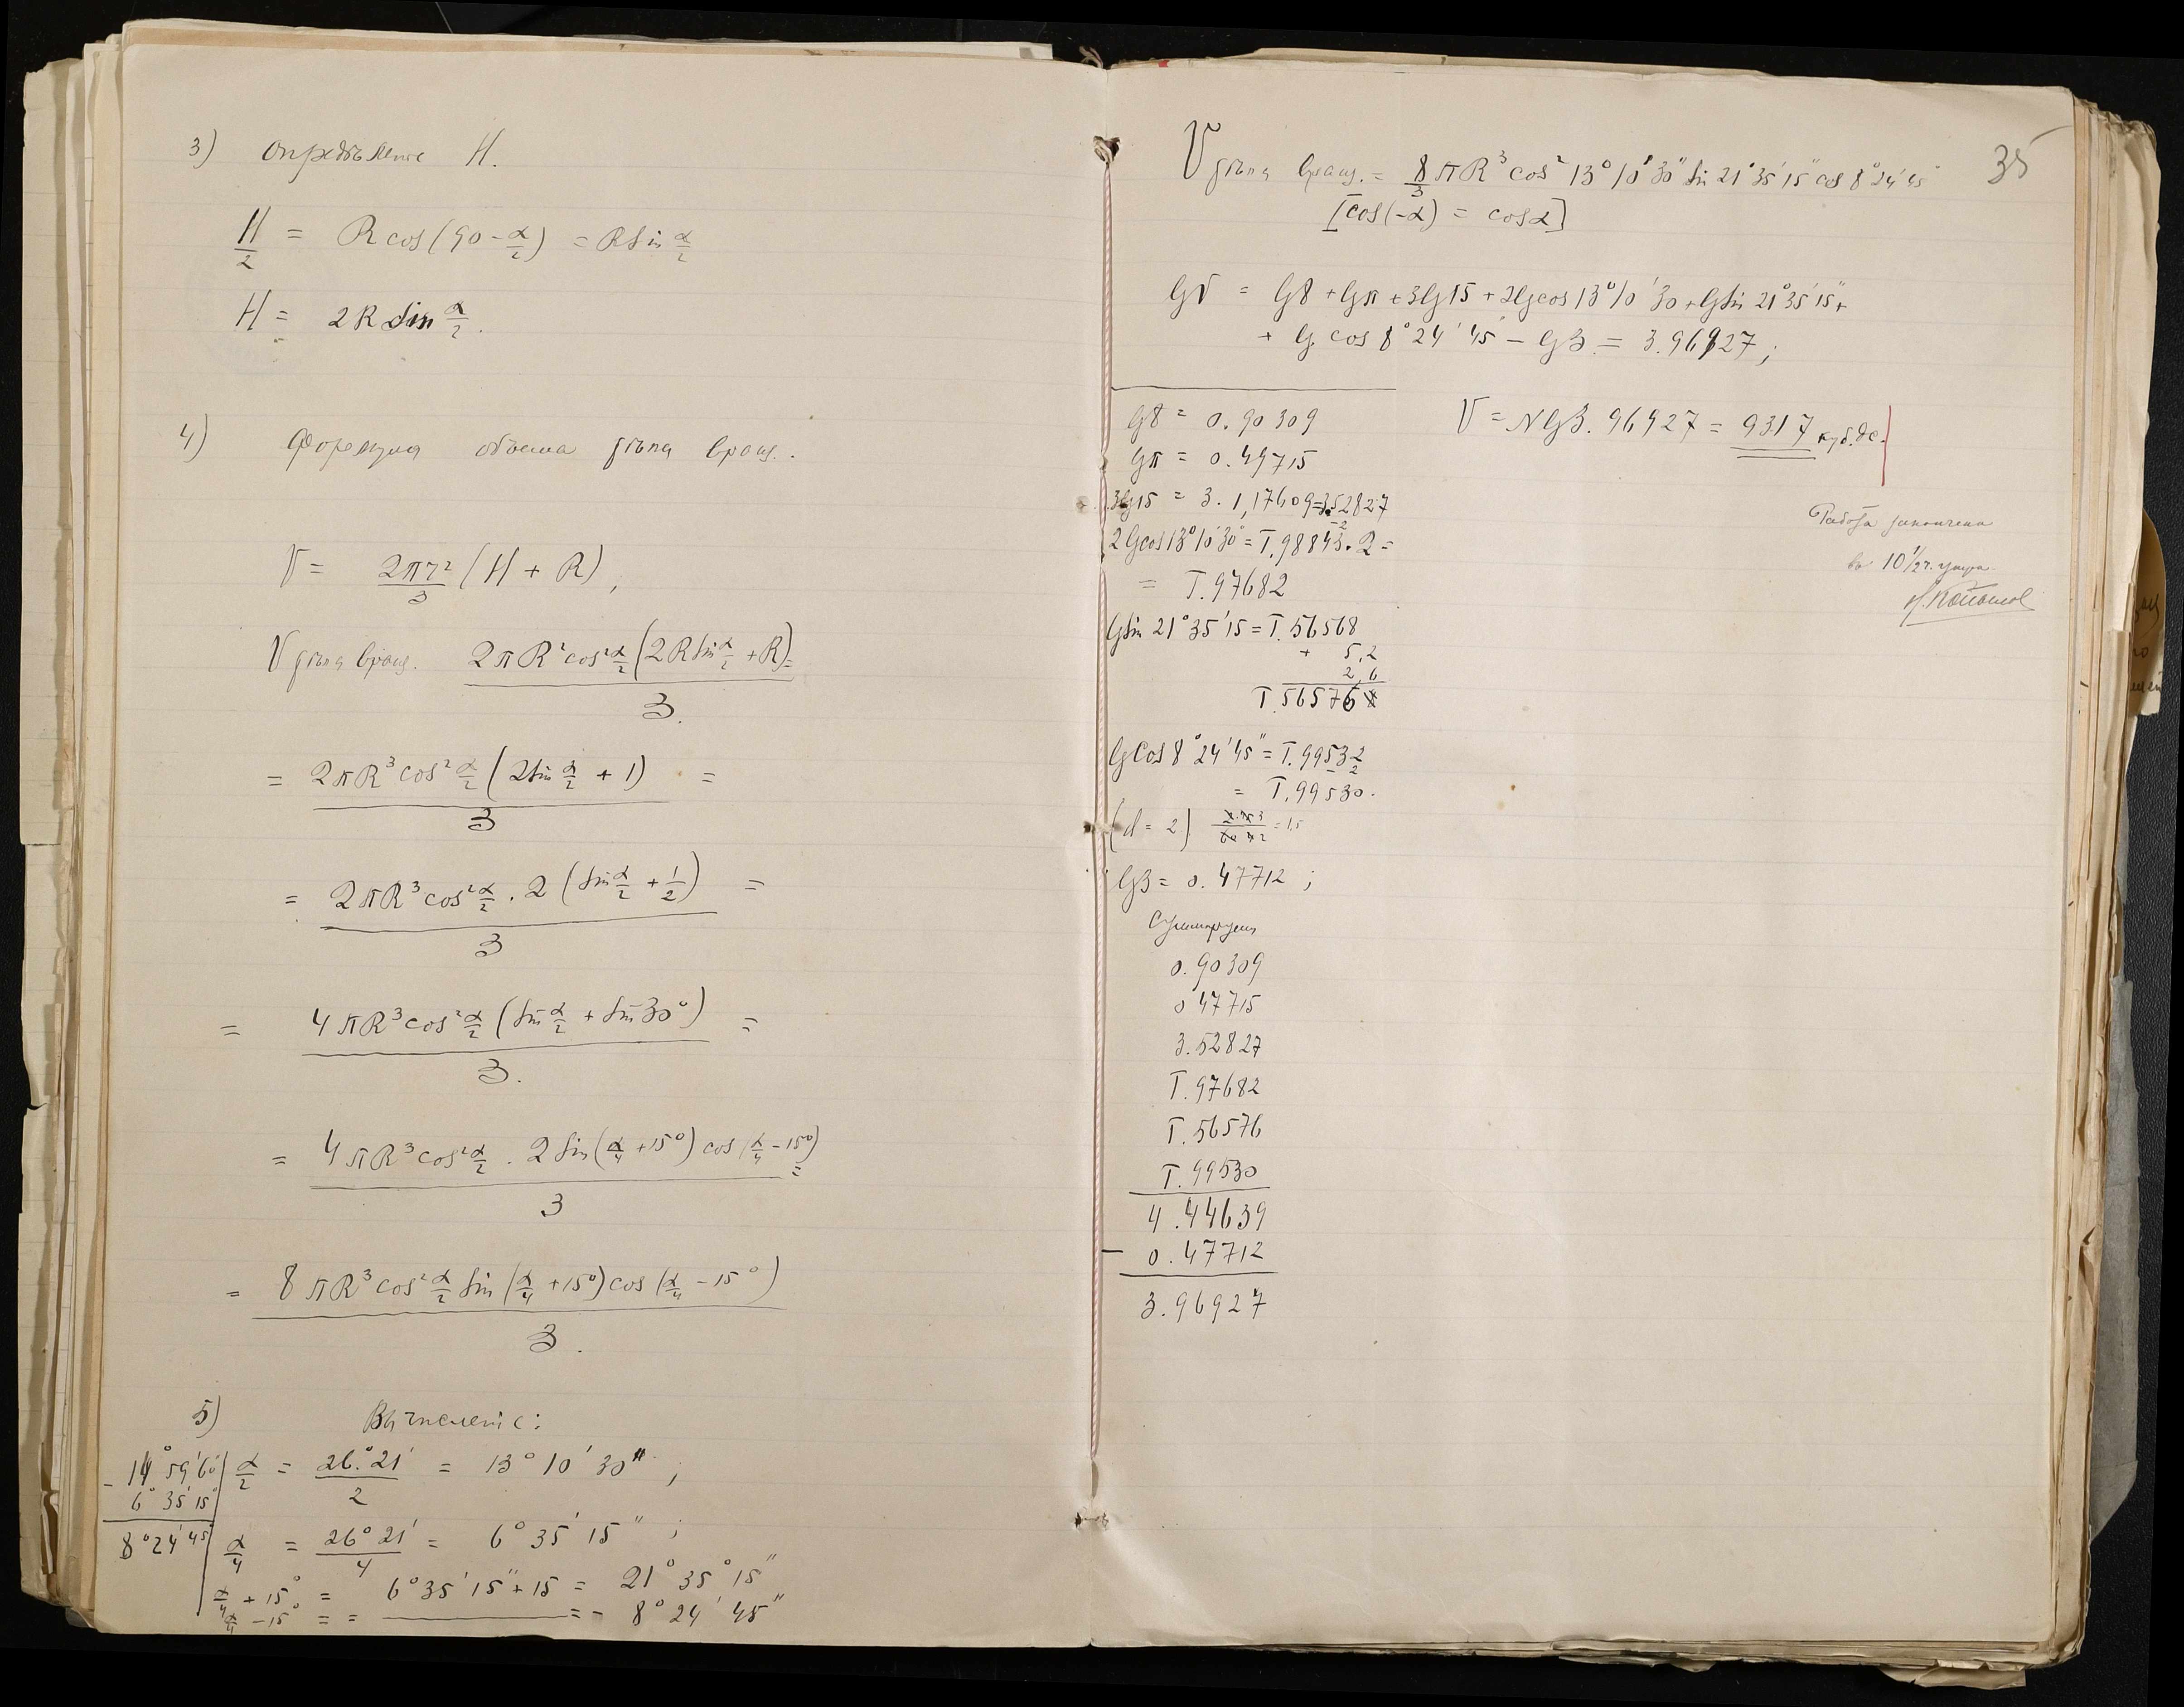 3) Опредѣленіе H.
H/2 = R cos(90 - α/2) = R sin α/2
H = 2R sin α/2.
4) Формула объема тѣла вращ..
V = 2πr²/3 (H + R),
V тѣла вращ. 2πR²cos²α/2 (2R sin α/2 + R)/3. =
= 2πR³cos²α/2 (2sin α/2 + 1)/3 =
= 2πR³cos²α/2 . 2 (sin α/2 + 1/2)/3 =
= 4πR³cos²α/2 (sin α/2 + sin 30°)/3. =
= 4πR³cos²α/2 . 2 sin(α/4 + 15°) cos(α/4 - 15°)/3 =
= 8πR³cos²α/2 sin(α/4 + 15°) cos(α/4 - 15°)/3.
5) Вычисленіе:
α/2 = 26°21'/2 = 13°10'30" ;
α/4 = 26°21'/4 = 6°35'15" ;
α/4 + 15° = 6°35'15" + 15 = 21°35°15"
α/4 - 15° = = = - 8°24'45"
- 14°59'60"
6°35'15"
8°24'45"
35
V тѣла вращ. = 8/3 πR³ cos² 13°10'30" sin 21°35'15" cos 8°24'45"
[cos(-α) = cosα]
lgV = lg8 + lgπ + 3lg15 + 2lgcos13°10'30 + lgsin 21°35'15" +
+ lg cos 8°24'45 - lg3 = 3.96927;
lg8 = 0.90309
lgπ = 0.49715
3lg15 = 3. 1,17609 = 3.52827
2lgcos13°10'30" = T.98843-2 . 2 =
= T.97682
lgsin 21°35'15 = T.56568
+ 5,2
2,6
T.56576
lgcos 8°24'45" = T.99532
- 2
= T.99530.
(d = 2) = 1,5
lg3 = 0.47712 ;
Суммируем
0.90309
0 47715
3.52827
T.97682
T.56576
T.99530
4.44639
- 0.47712
3.96927
V = Nlg3.96927 = 9317 куб.дс.
Работа закончена
въ 10 1/2 ч. утра.